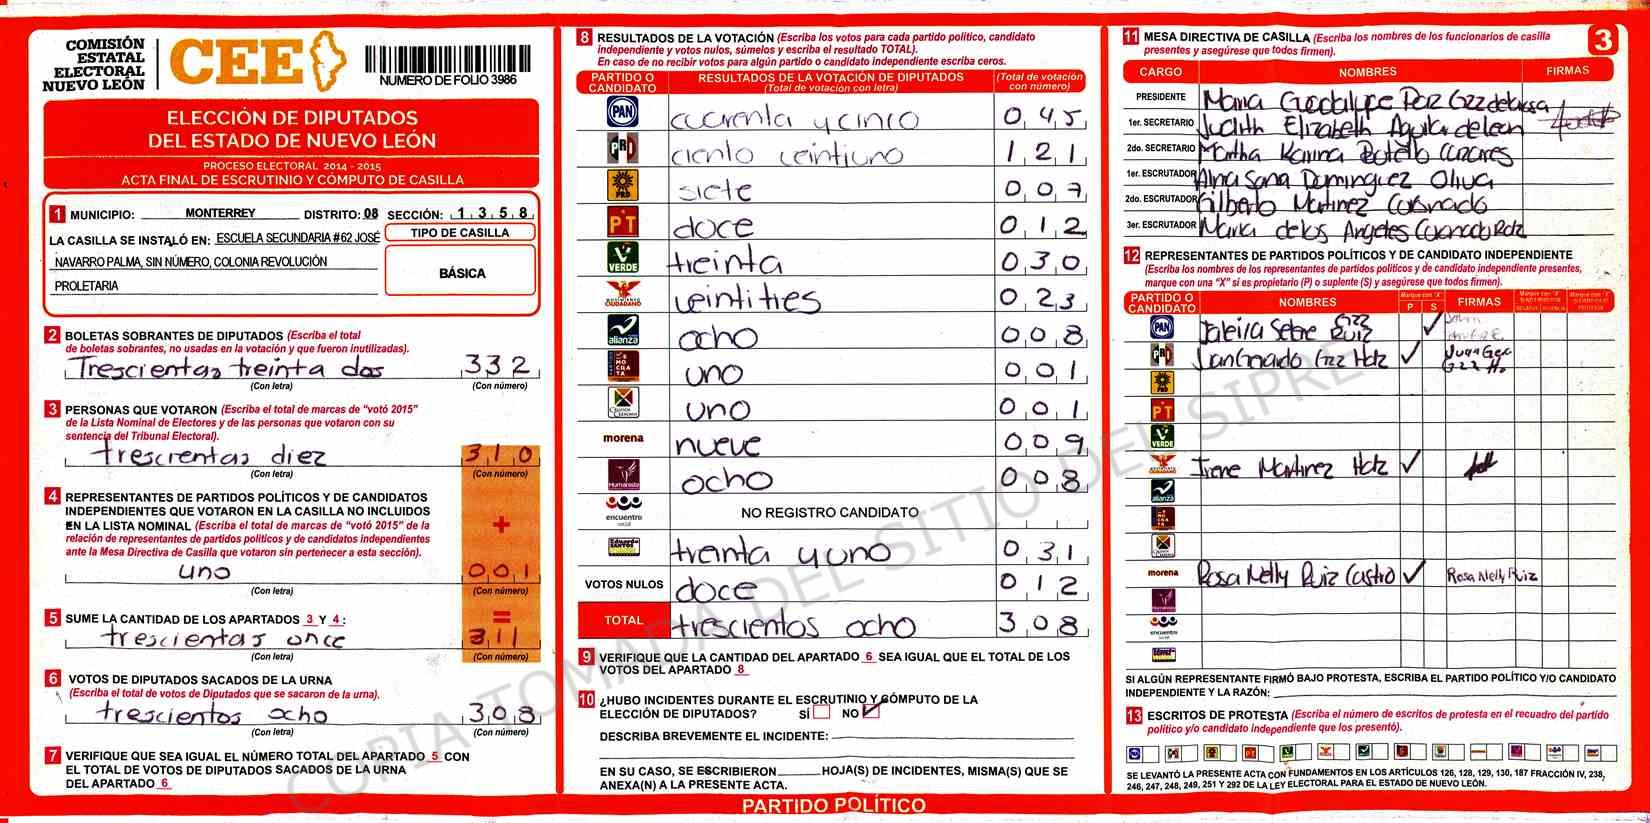 COMISIÓN
ESTATAL
ELECTORAL
NUEVO LEÓN
CEE
NUMERO DE FOLIO 3986
ELECCIÓN DE DIPUTADOS
DEL ESTADO DE NUEVO LEÓN
PROCESO ELECTORAL 2014 - 2015
ACTA FINAL DE ESCRUTINIO Y CÓMPUTO DE CASILLA
1 MUNICIPIO: MONTERREY DISTRITO: 08 SECCIÓN: 1 3 5 8
LA CASILLA SE INSTALÓ EN: ESCUELA SECUNDARIA #62 JOSÉ
NAVARRO PALMA, SIN NÚMERO, COLONIA REVOLUCIÓN
PROLETARIA
TIPO DE CASILLA
BÁSICA
2 BOLETAS SOBRANTES DE DIPUTADOS (Escriba el total
de boletas sobrantes, no usadas en la votación y que fueron inutilizadas).
Trescientas treinta dos 332
(Con letra) (Con número)
3 PERSONAS QUE VOTARON (Escriba el total de marcas de “votó 2015”
de la Lista Nominal de Electores y de las personas que votaron con su
sentencia del Tribunal Electoral).
trescientas diez 310
(Con letra) (Con número)
4 REPRESENTANTES DE PARTIDOS POLÍTICOS Y DE CANDIDATOS
INDEPENDIENTES QUE VOTARON EN LA CASILLA NO INCLUIDOS
EN LA LISTA NOMINAL (Escriba el total de marcas de “votó 2015” de la
relación de representantes de partidos políticos y de candidatos independientes
ante la Mesa Directiva de Casilla que votaron sin pertenecer a esta sección).
+
uno 001
(Con letra) (Con número)
=
5 SUME LA CANTIDAD DE LOS APARTADOS 3 Y 4:
trescientas once 311
(Con letra) (Con número)
6 VOTOS DE DIPUTADOS SACADOS DE LA URNA
(Escriba el total de votos de Diputados que se sacaron de la urna).
trescientos ocho 308
(Con letra) (Con número)
7 VERIFIQUE QUE SEA IGUAL EL NÚMERO TOTAL DEL APARTADO 5 CON
EL TOTAL DE VOTOS DE DIPUTADOS SACADOS DE LA URNA
DEL APARTADO 6
8 RESULTADOS DE LA VOTACIÓN (Escriba los votos para cada partido político, candidato
independiente y votos nulos, súmelos y escriba el resultado TOTAL).
En caso de no recibir votos para algún partido o candidato independiente escriba ceros.
PARTIDO O CANDIDATO RESULTADOS DE LA VOTACIÓN DE DIPUTADOS (Total de votación con letra) (Total de votación con número)
PAN cuarenta y cinco 045
PRI ciento veintiuno 121
PRD siete 007
PT doce 012
VERDE treinta 030
MOVIMIENTO CIUDADANO veintitres 023
alianza ocho 008
DEMOCRATA uno 001
uno 001
morena nueve 009
Humanista ocho 008
encuentro social NO REGISTRO CANDIDATO
treinta y uno 031
VOTOS NULOS doce 012
TOTAL trescientos ocho 308
9 VERIFIQUE QUE LA CANTIDAD DEL APARTADO 6 SEA IGUAL QUE EL TOTAL DE LOS
VOTOS DEL APARTADO 8
10 ¿HUBO INCIDENTES DURANTE EL ESCRUTINIO Y CÓMPUTO DE LA
ELECCIÓN DE DIPUTADOS? SÍ NO
DESCRIBA BREVEMENTE EL INCIDENTE:
EN SU CASO, SE ESCRIBIERON HOJA(S) DE INCIDENTES, MISMA(S) QUE SE
ANEXA(N) A LA PRESENTE ACTA.
PARTIDO POLÍTICO
3
11 MESA DIRECTIVA DE CASILLA (Escriba los nombres de los funcionarios de casilla
presentes y asegúrese que todos firmen).
CARGO NOMBRES FIRMAS
PRESIDENTE Maria Guadalupe Paz Gzz de la rosa
1er. SECRETARIO Judith Elizabeth Aguilar de leon
2do. SECRETARIO Martha Karina Botello
1er. ESCRUTADOR Alma Dominguez Oliva
2do. ESCRUTADOR Gilberto Martinez Coronado
3er. ESCRUTADOR Maria de los Angeles Coronado
12 REPRESENTANTES DE PARTIDOS POLÍTICOS Y DE CANDIDATO INDEPENDIENTE
(Escriba los nombres de los representantes de partidos políticos y de candidato independiente presentes,
marque con una “X” si es propietario (P) o suplente (S) y asegúrese que todos firmen).
PARTIDO O CANDIDATO NOMBRES P S FIRMAS
PAN Gzz Ruiz
PRI Gzz Hdz
PRD
PT
VERDE
Irene Martinez Hdz
alianza
morena Rosa Nelly Ruiz Castro Rosa Nelly Ruiz
encuentro
SI ALGÚN REPRESENTANTE FIRMÓ BAJO PROTESTA, ESCRIBA EL PARTIDO POLÍTICO Y/O CANDIDATO
INDEPENDIENTE Y LA RAZÓN:
13 ESCRITOS DE PROTESTA (Escriba el número de escritos de protesta en el recuadro del partido
político y/o candidato independiente que los presentó).
SE LEVANTÓ LA PRESENTE ACTA CON FUNDAMENTOS EN LOS ARTÍCULOS 126, 128, 129, 130, 187 FRACCIÓN IV, 238,
246, 247, 248, 249, 251 Y 292 DE LA LEY ELECTORAL PARA EL ESTADO DE NUEVO LEÓN.
COPIA TOMADA DEL SITIO DEL SIPRE